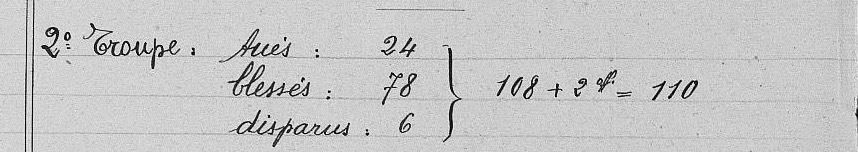 2º Troupe : tués : 24
blessés : 78 } 108 + 2 off. = 110
disparus : 6